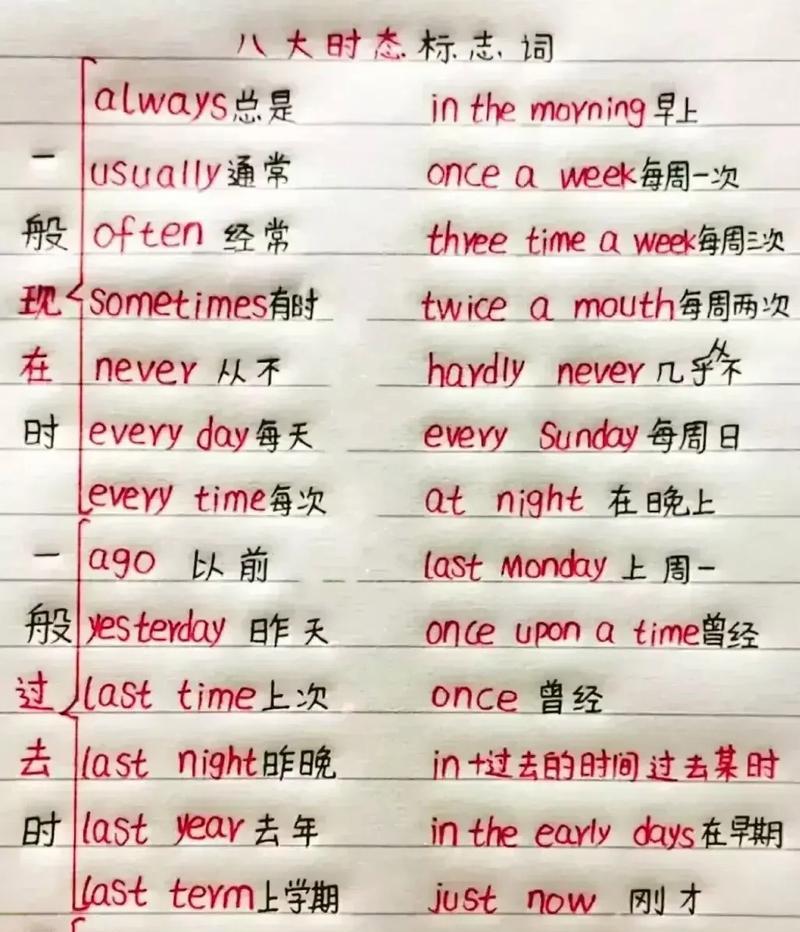 八大时态标志词
always总是 in the morning早上
一 usually通常 once a week每周一次
般 often 经常 three time a week每周三次
现 sometimes有时 twice a mouth每周两次
在 never 从不 hardly never 几乎从不
时 every day每天 every Sunday每周日
every time每次 at night 在晚上
一 ago 以前 last Monday 上周一
般 yesterday 昨天 once upon a time曾经
过 last time上次 once 曾经
去 last night昨晚 in+过去的时间 过去某时
时 last year去年 in the early days在早期
last term上学期 just now 刚才